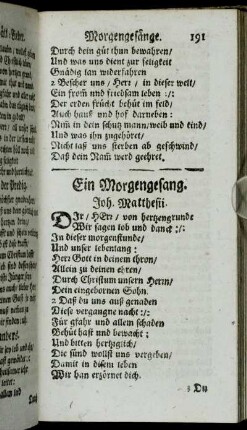 Morgengesänge. 191
Durch dein güt thun bewahren/
Und was uns dient zur seligkeit
Gnädig lan widerfahren
2 Bescher uns/Herr/ in dieser welt/
Ein fromm und friedsam leben :/:
Der erden frücht behüt im feld/
Auch hauß und hof darneben:
Nim̄ in dein schutz mann/weib und kind/
Und was ihn zugehöret/
Nicht laß uns sterben ab geschwind/
Daß dein Nam̄ werd geehret.
Ein Morgengesang.
Joh. Matthesii.
DIr/ HErr/ von hertzengrunde
Wir sagen lob und danck :/:
In dieser morgenstunde/
Und unser lebenlang:
Herr Gott in deinem thron/
Allein zu deinen ehren/
Durch Christum unsern Herrn/
Dein eingebornen Sohn.
2 Daß du uns auß genaden
Diese vergangne nacht :/:
Für gfahr und allem schaden
Behüt hast und bewacht;
Und bitten hertzglich/
Die sünd wollst uns vergeben/
Damit in disem leben
Wir han erzörnet dich.
3 Du